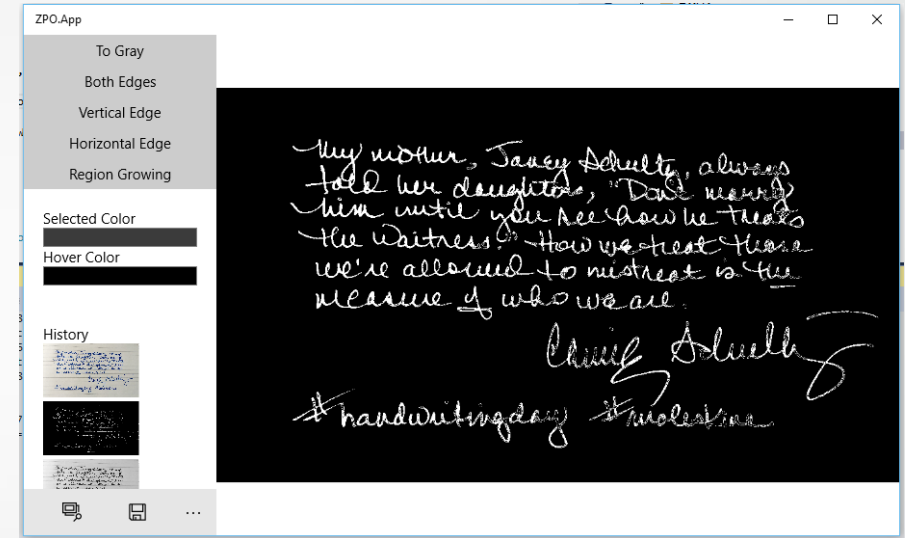 ZPO.App
To Gray
Both Edges
Vertical Edge
Horizontal Edge
Region Growing
Selected Color
Hover Color
History
My mother, Jancy Schultz, always
told her daughters, "Don't marry
him until you see how he treats
the waitress." How we treat those
we're allowed to mistreat is the
measure of who we are.
Schultz
#handwritingday #molestine